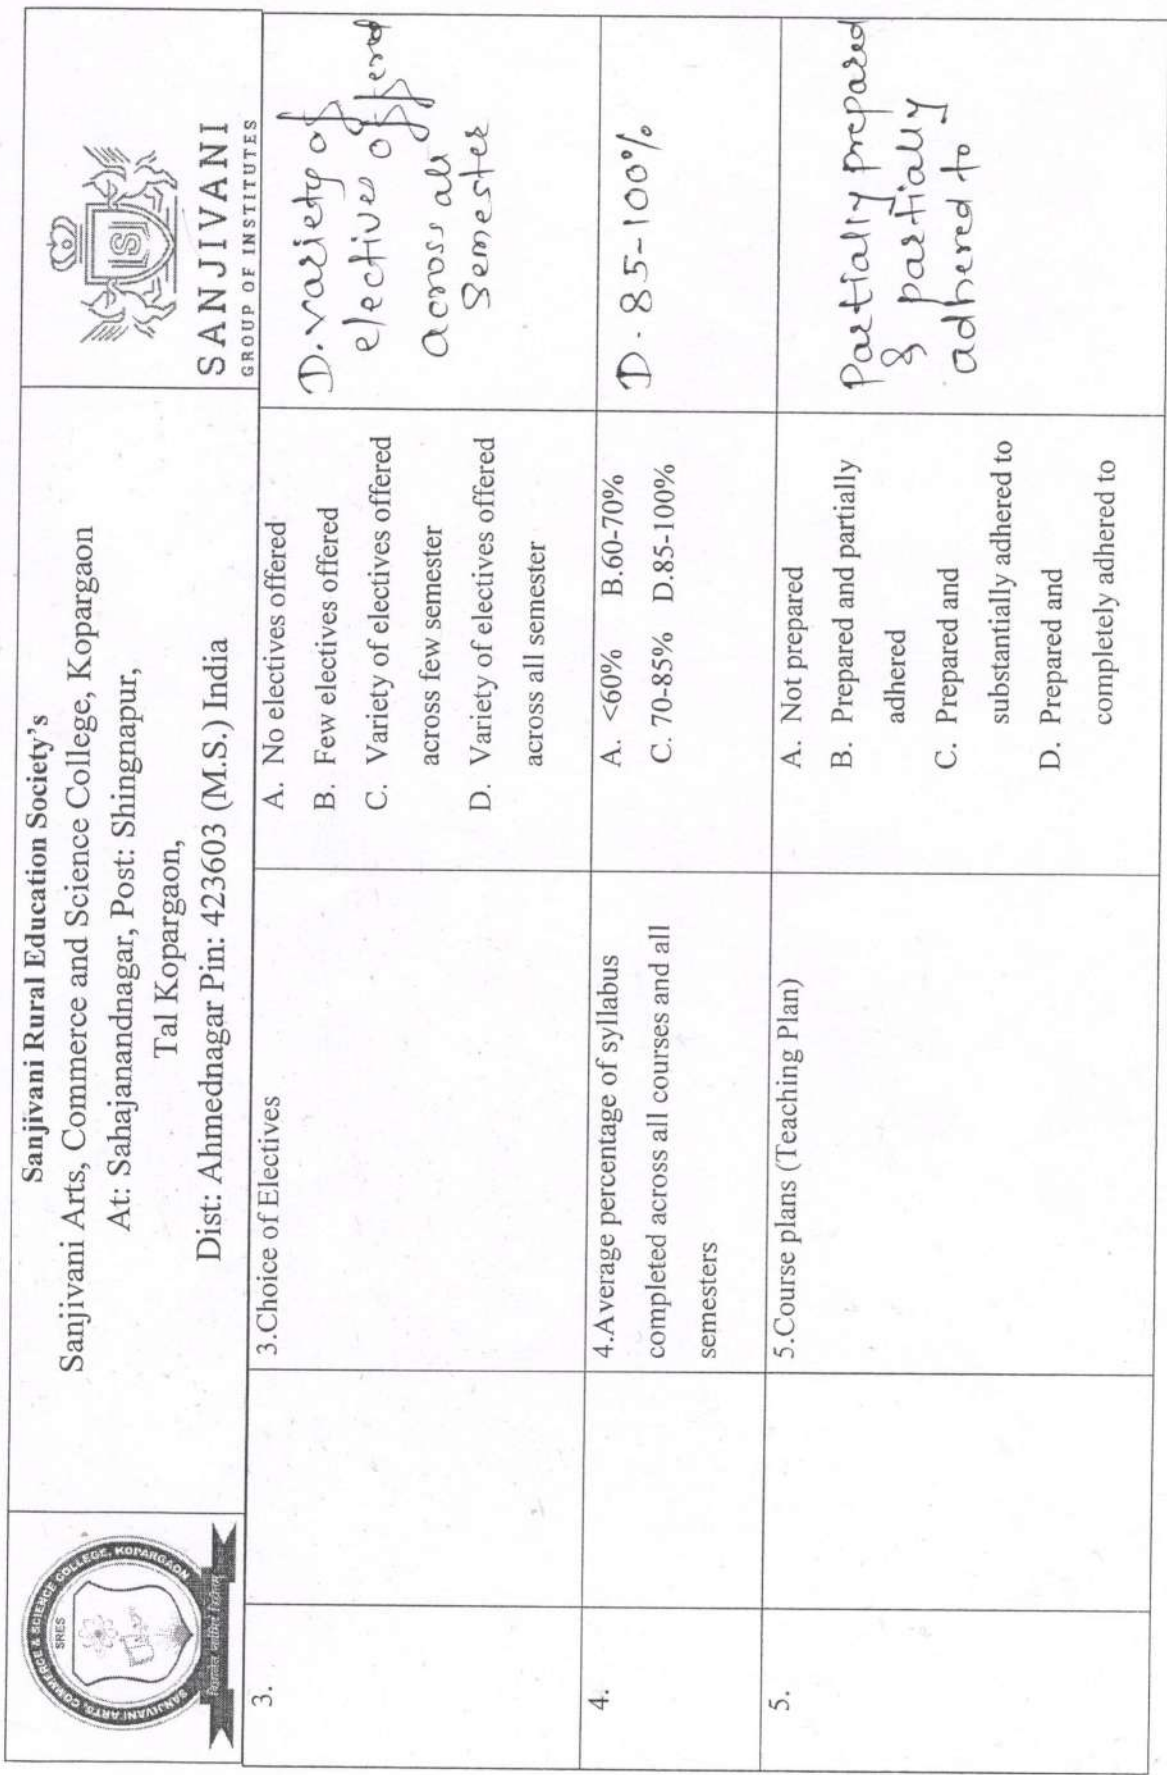 SANJIVANI ARTS, COMMERCE & SCIENCE COLLEGE, KOPARGAON
SRES
Sanjivani Rural Education Society's
Sanjivani Arts, Commerce and Science College, Kopargaon
At: Sahajanandnagar, Post: Shingnapur,
Tal Kopargaon,
Dist: Ahmednagar Pin: 423603 (M.S.) India
S
SANJIVANI
GROUP OF INSTITUTES
3.
3.Choice of Electives
A. No electives offered
B. Few electives offered
C. Variety of electives offered
across few semester
D. Variety of electives offered
across all semester
D. variety of
electives offered
across all
semester
4.
4.Average percentage of syllabus
completed across all courses and all
semesters
A. <60% B.60-70%
C. 70-85% D.85-100%
D. 85-100%
5.
5.Course plans (Teaching Plan)
A. Not prepared
B. Prepared and partially
adhered
C. Prepared and
substantially adhered to
D. Prepared and
completely adhered to
Partially prepared
& partially
adhered to